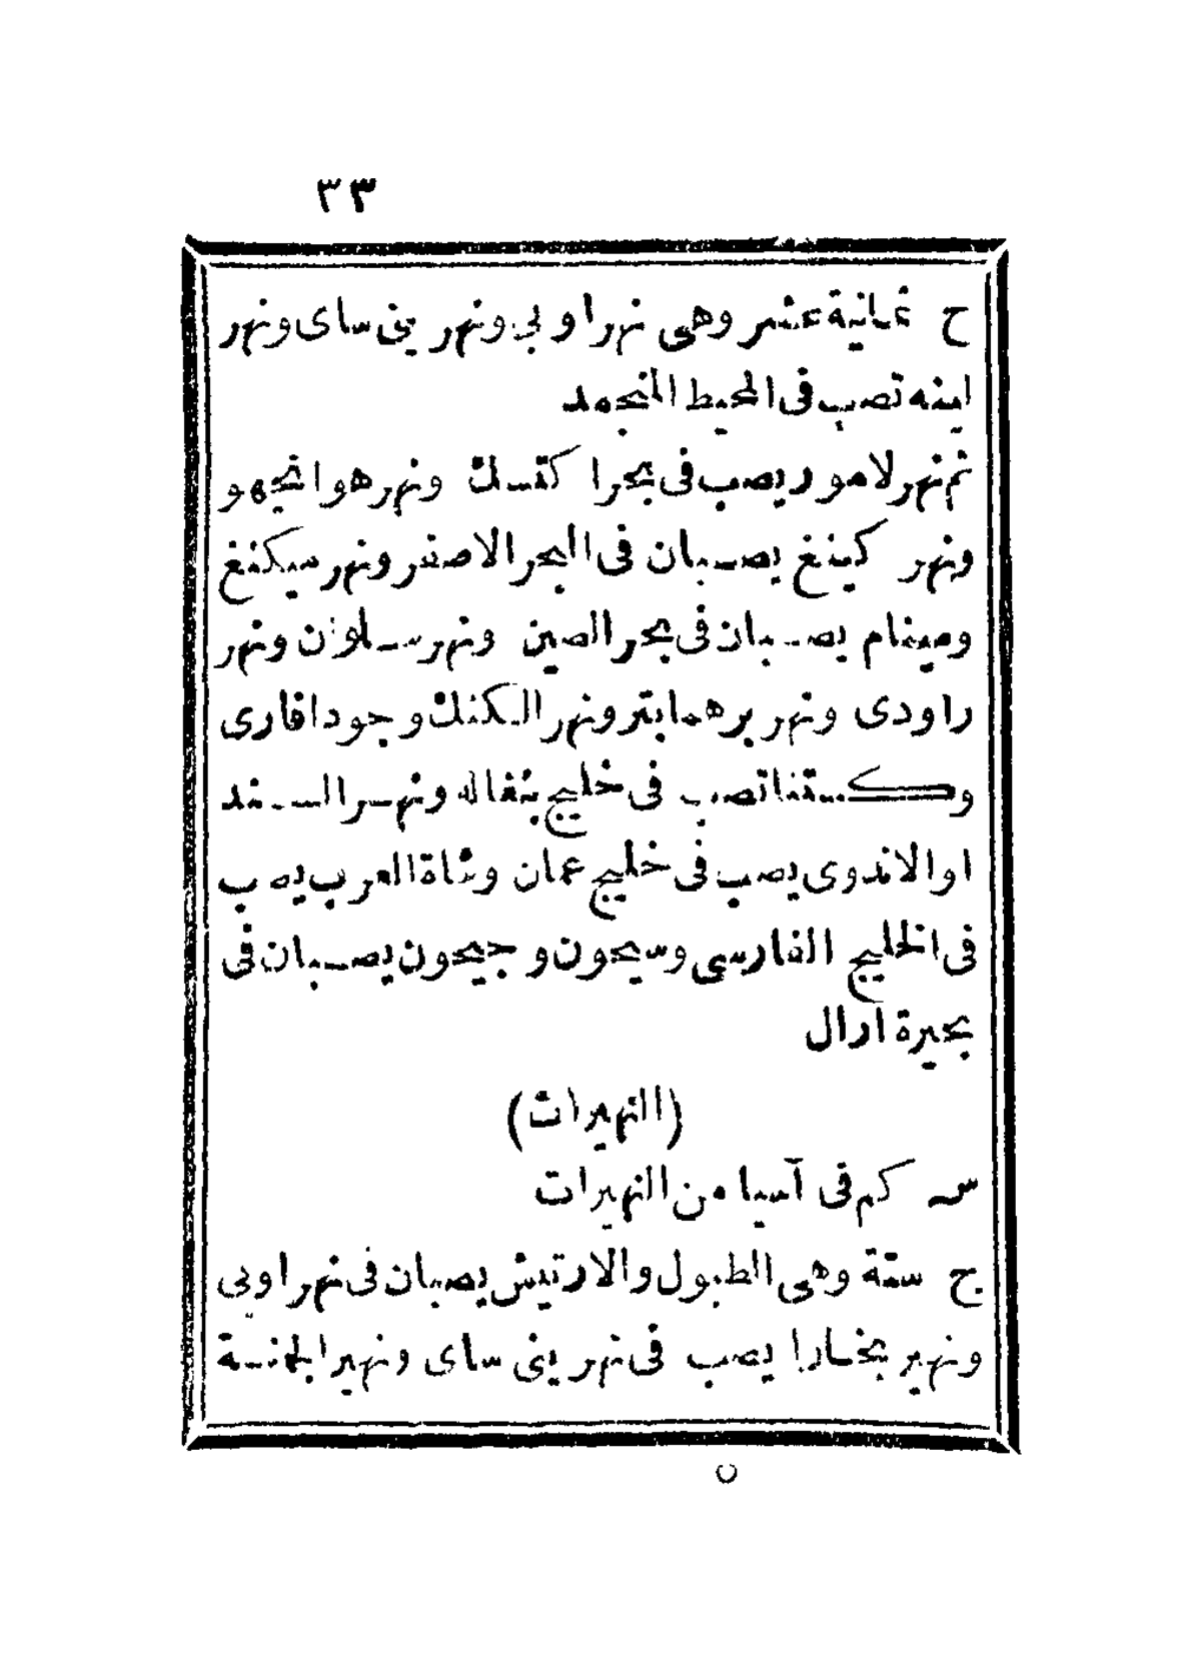 ٣٣
ج ثمانية عشر وهى نهر اوبى ونهر ينى ساى ونهر
لينه تصب فى المحيط المنجمد
ثم نهر لامور يصب فى بحر اكتسك ونهر هوانجهو
ونهر كينغ يصبان فى البحر الاصفر ونهر سيكنغ
ومينام يصبان فى بحر الصين ونهر سلوان ونهر
راودى ونهر برهمابتر ونهر الكنك وجودافارى
وكستنا تصب فى خليج بنغاله ونهر السند
او الاندوى يصب فى خليج عمان وشاة العرب يصب
فى الخليج الفارسى وسيحون وجيحون يصبان فى
بحيرة ارال
(النهيرات)
س كم فى آسيا من النهيرات
ج ستة وهى الطبول والارتيش يصبان فى نهر اوبى
ونهير بخارا يصب فى نهر ينى ساى ونهير الجمنة
٥